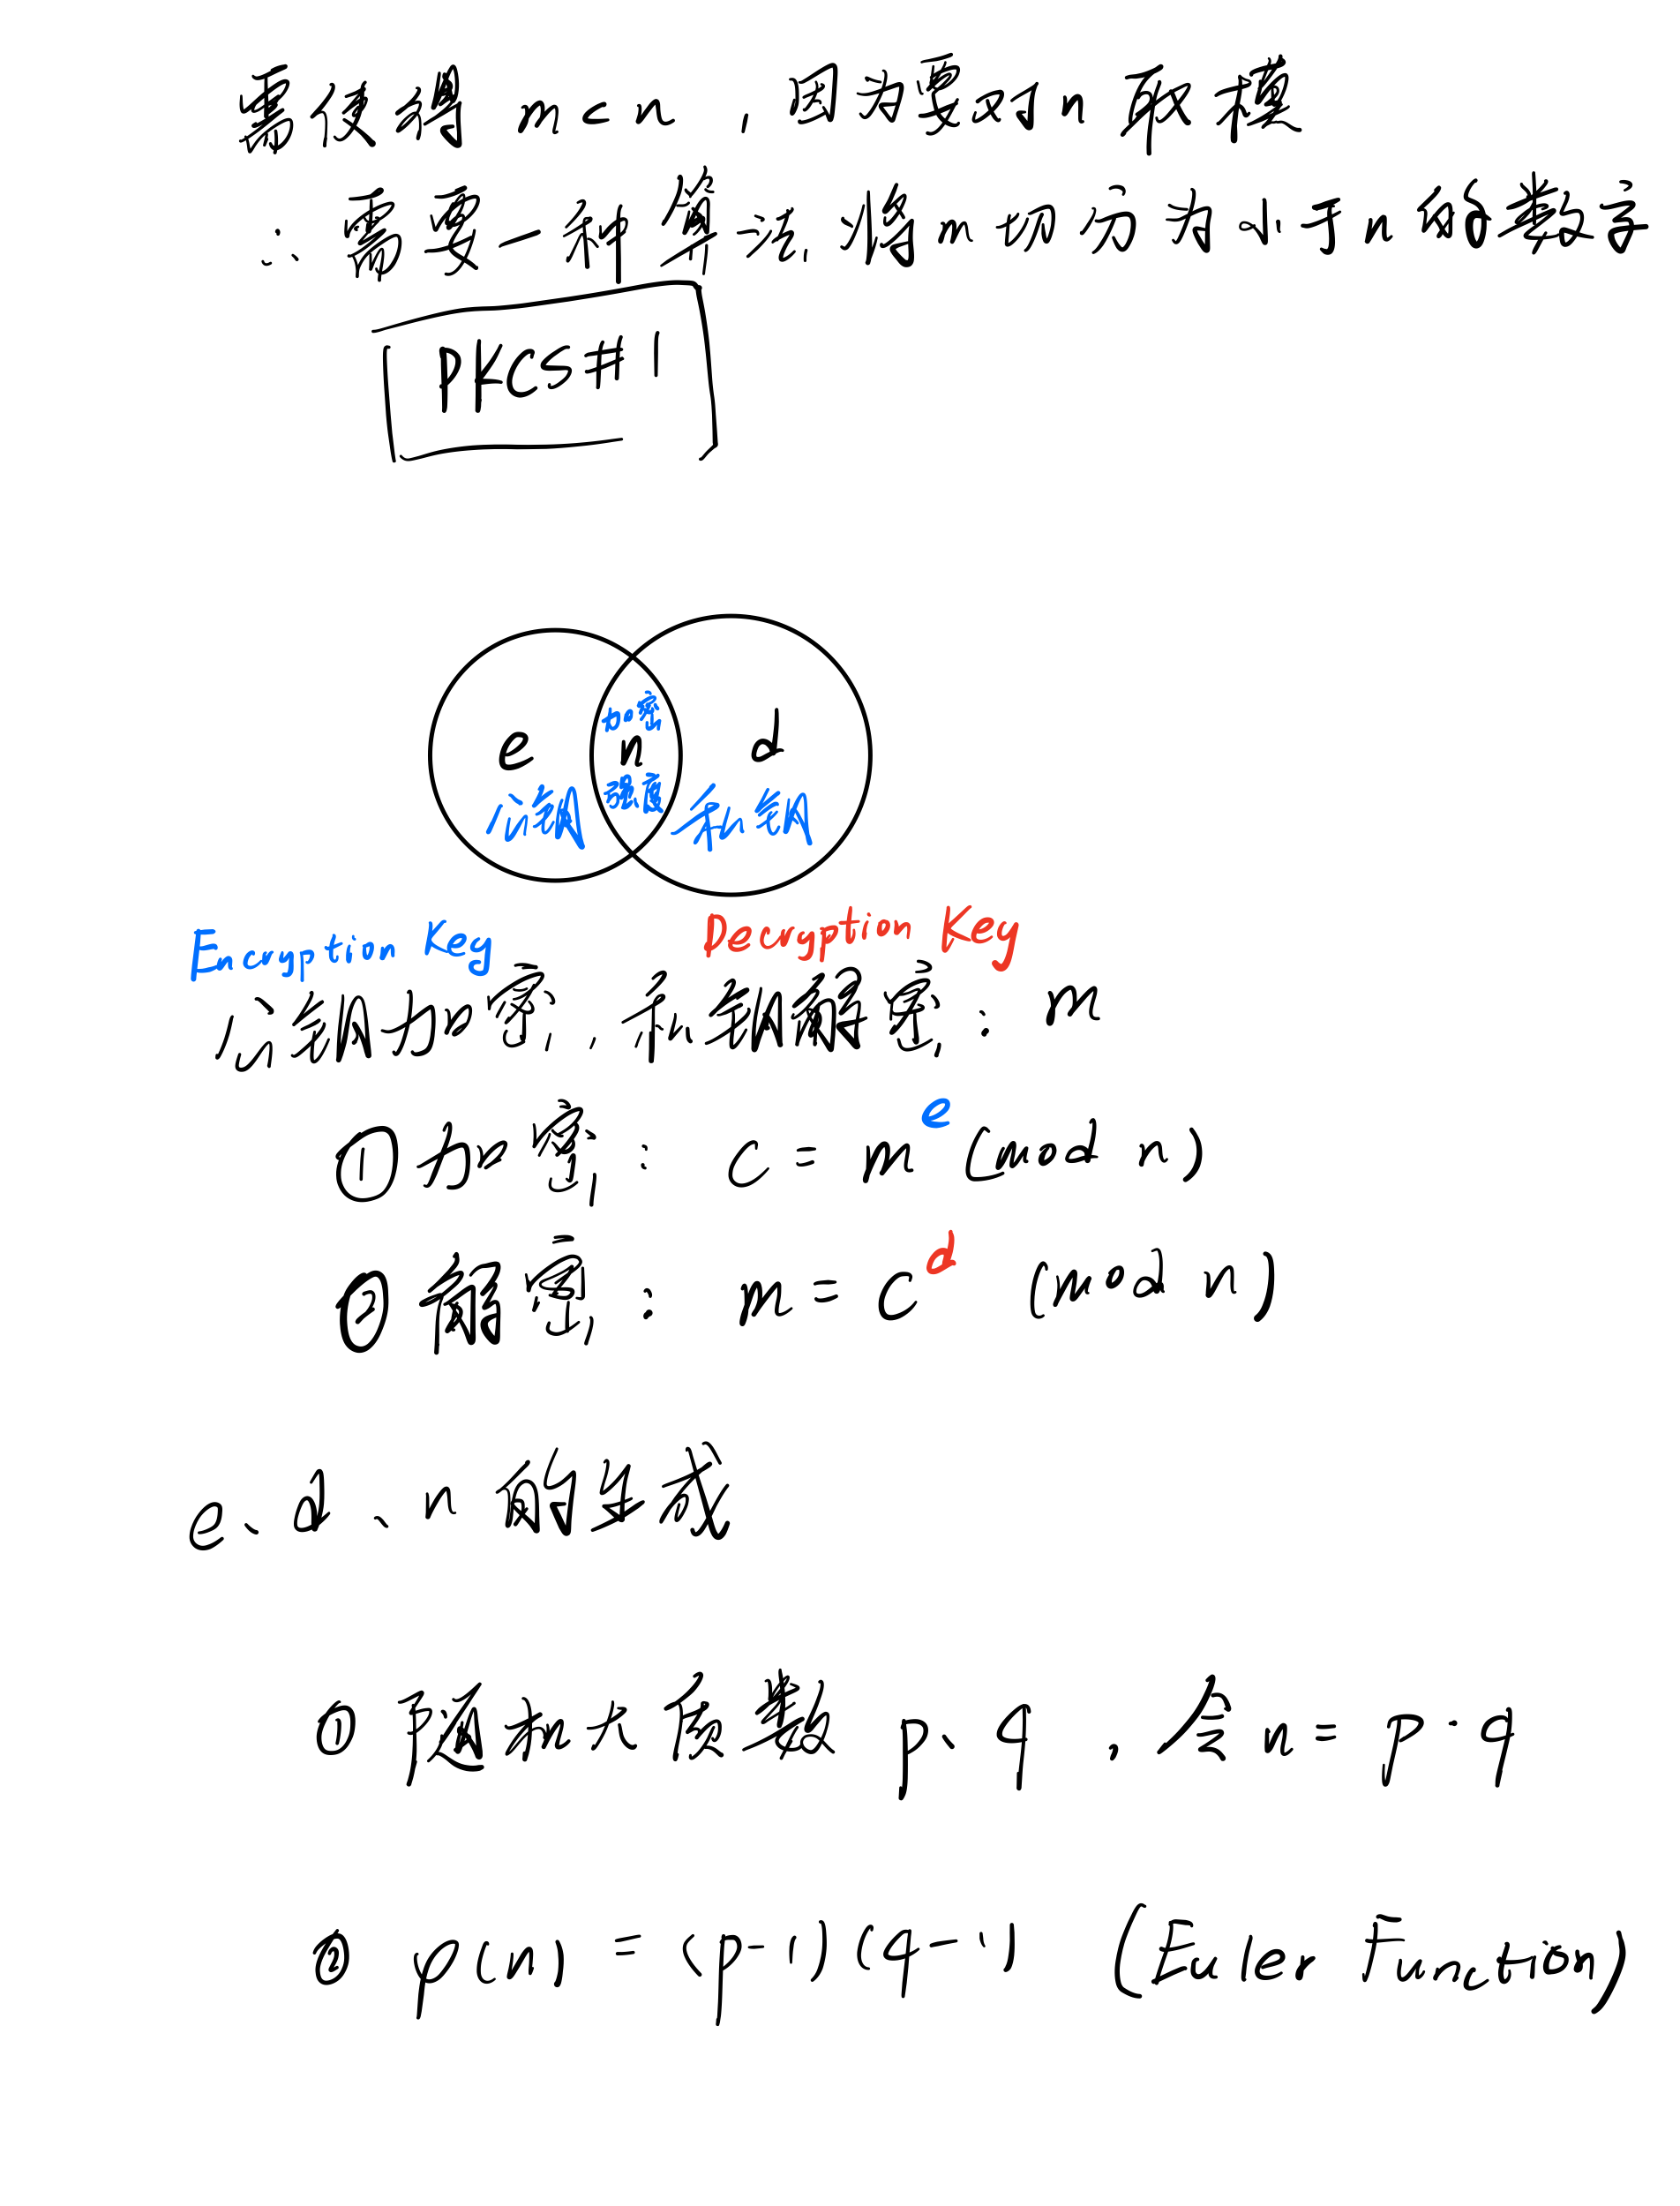 需使得 m<n , 因为要对n 取模
∴ 需要一种算法,将m切分为小于n的数字
PKCS#1
加密
e n d
公钥 强度 私钥
Encryption Key Decryption Key
公钥加密,私钥解密: m
①加密: c = m^e (mod n)
②解密: m = c^d (mod n)
e、d、n 的生成
① 随机大质数 p、q , 令 n = p·q
② φ(n) = (p-1)(q-1) (Euler Function)